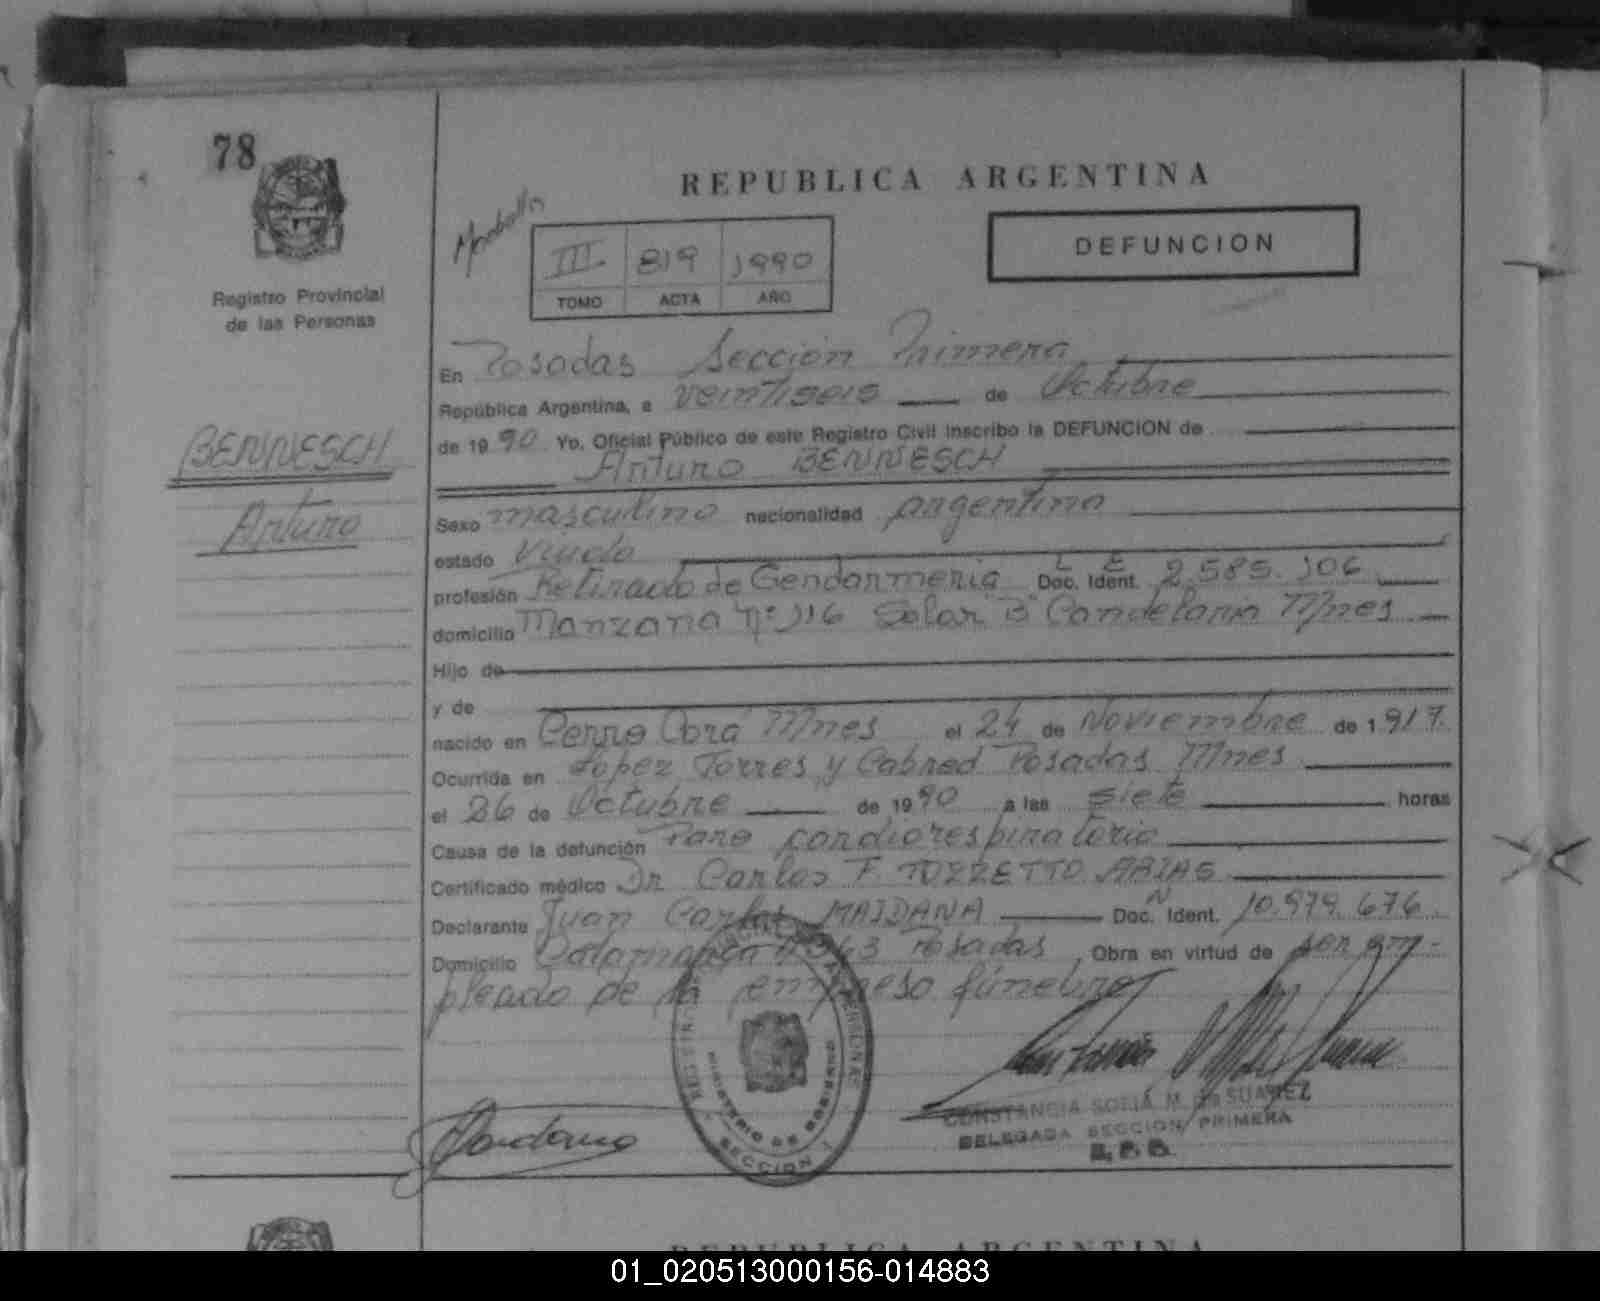 78
REPUBLICA ARGENTINA
III 819 1990
TOMO ACTA AÑO
DEFUNCION
Registro Provincial
de las Personas
BENNESCH
Arturo
En Posadas Sección Primera
República Argentina, a veintiseis de Octubre
de 1990 Yo, Oficial Público de este Registro Civil inscribo la DEFUNCION de
Arturo BENNESCH
Sexo masculino nacionalidad argentina
estado viudo
profesión Retirado de Gendarmeria L E Doc. Ident. 2.585.106
domicilio Manzana Nº 116 Solar "B" Candelaria Mnes
Hijo de
y de
nacido en Cerro Corá Mnes el 24 de Noviembre de 1.917.
Ocurrida en Lopez Torres y Cabred Posadas Mnes
el 26 de Octubre de 1990 a las siete horas
Causa de la defunción Paro cardiorespiratorio
Certificado médico Dr Carlos F. TORRETTO ARIAS
Declarante Juan Carlos MAIDANA Doc. N Ident. 10.979.676.
Domicilio Posadas Obra en virtud de ser em-
pleado de la empresa fúnebre
MINISTERIO DE GOBIERNO
SECCION I
CONSTANCIA SOFIA M. de SUAREZ
DELEGADA SECCION PRIMERA
REPUBLICA ARGENTINA
01_020513000156-014883